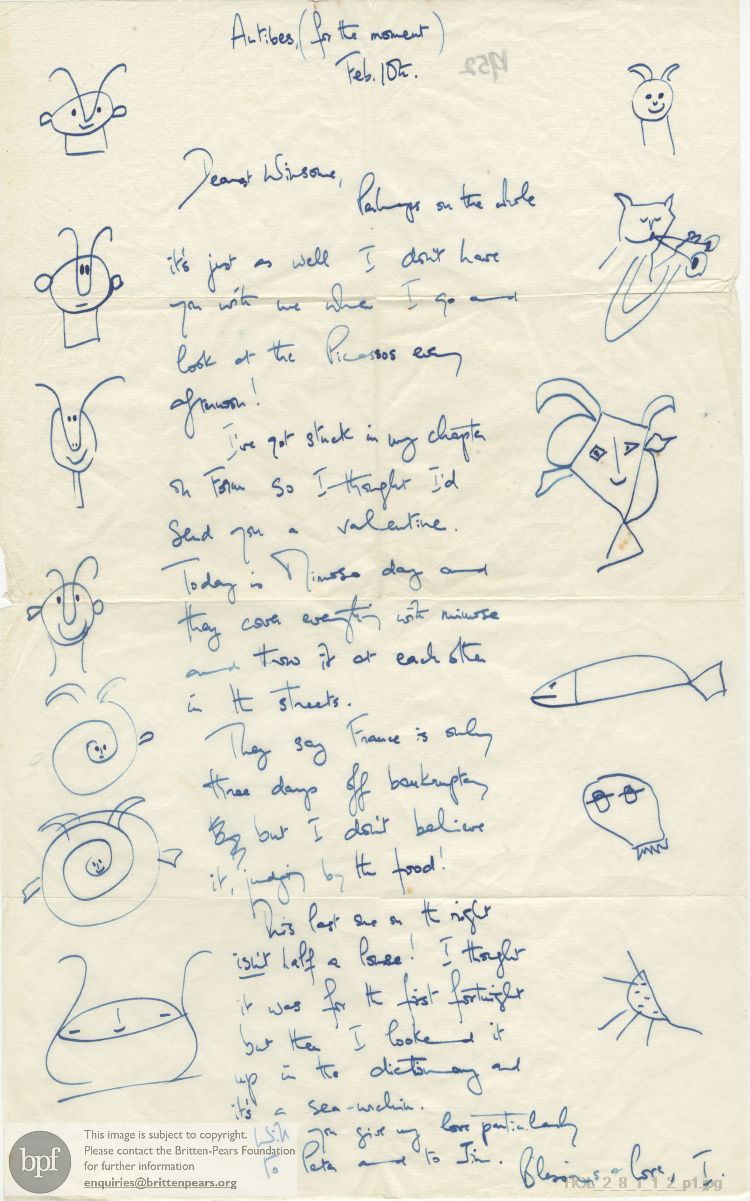 Antibes, (for the moment)
Feb. 10th.
1952
Dearest Winsome,
Perhaps on the whole
it's just as well I don't have
you with me when I go and
look at the Picassos every
afternoon!
I've got stuck in my chapter
on Form so I thought I'd
send you a valentine.
Today is Mimosa day and
they cover everything with mimosa
and throw it at each other
in the streets.
They say France is only
three days off bankruptcy
but I don't believe
it, judging by the food!
This last one on the right
isn't half a louse! I thought
it was for the first fortnight
but then I looked it
up in the dictionary and
it's a sea-urchin.
Will you give my love particularly
to Peter and to Jim. Blessings & love, I.
bpf
This image is subject to copyright.
Please contact the Britten-Pears Foundation
for further information
enquiries@brittenpears.org